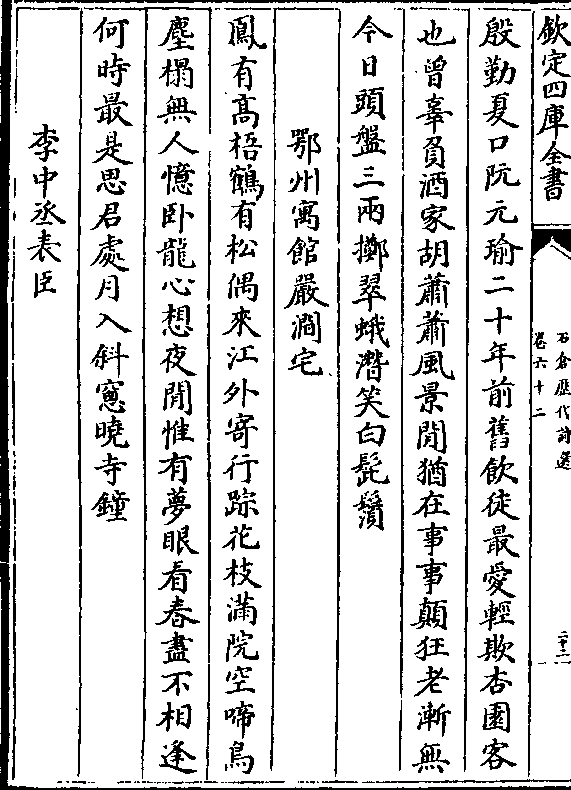 欽定四庫全書
石倉歷代詩選
卷六十二
二十二
殷勤夏口阮元瑜二十年前舊飲徒最愛輕欺杏園客
也曾辜負酒家胡蕭蕭風景閒猶在事事顛狂老漸無
今日頭盤三兩擲翠蛾潛笑白髭鬚
鄂州寓館嚴澗宅
鳳有高梧鶴有松偶來江外寄行踪花枝滿院空啼鳥
塵榻無人憶卧龍心想夜閒惟有夢眼看春盡不相逢
何時最是思君處月入斜窻曉寺鐘
李中丞表臣